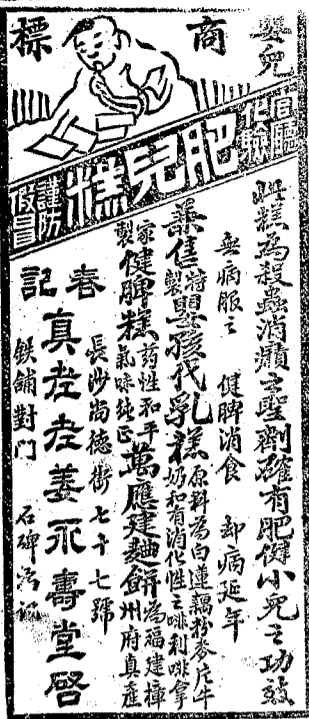 嬰兒商標
官廳化驗
肥兒糕
謹防假冒
此糕為殺蟲消癪之聖劑確有肥健小兒之功效
無病服之 健脾消食 却病延年
藥售特製嬰孩代乳糕原料為白蓮藕粉麥片牛奶和有消化性之啡利啡拿
家製健脾糕藥性和平氣味純正萬應建麯餅為福建樟州府真產
長沙尚德街七十七號
春記真老老姜永壽堂啓
鉄舖對門 石碑為記